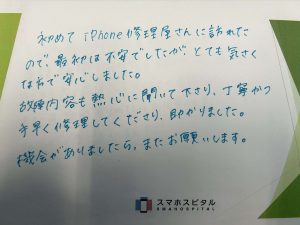 初めて iPhone修理屋さんに訪れた
ので、最初は不安でしたが、とても気さく
な方で安心しました。
故障内容も熱心に聞いて下さり、丁寧かつ
手早く修理してくださり、助かりました。
機会がありましたら、またお願いします。
スマホスピタル
SMAHOSPITAL